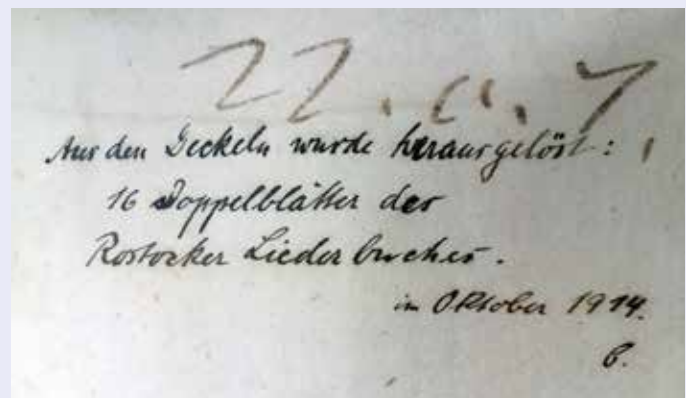 22. a. 7.
Aus den Deckeln wurde herausgelöst:
16 Doppelblätter des
Rostocker Liederbuches.
im Oktober 1914.
B.